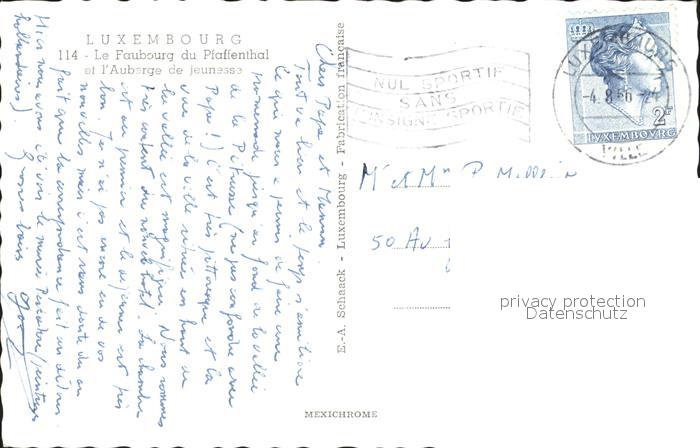 LUXEMBOURG
114 - Le Faubourg du Pfaffenthal
et l'Auberge de jeunesse
Chers Papa et Maman.
Tout va bien et le temps s'améliore
Ce qui nous a permis de faire une
promenade jusqu'au fond de la vallée
de la Pétrusse (ne pas confondre avec
Papa!) c'est très pittoresque et la
vue de la ville située en haut de
la vallée est magnifique. Nous sommes
très content du nouvel hotel. La chambre
est au premier et le déjeuner est très
bon. Je n'ai pas encore eu de vos
nouvelles mais c'est sans doute du au
fait que la correspondance fait un détour.
Hier nous avons été voir le musée Pescatore (peintures
hollandaises) Gros baisers
E.-A. Schaack - Luxembourg - Fabrication française
MEXICHROME
NUL SPORTIF
SANS
INSIGNE SPORTIF
LUXEMBOURG
-4.8.
VILLE
2F
LUXEMBOURG
Mr et Mm P
50 Av
privacy protection
Datenschutz